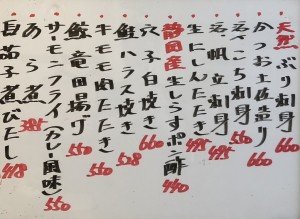 天然 ぶり刺身 660
かつお土佐造り 660
活こち刺身 550
活帆立刺身 495
生にしんたたき 495
静岡産生しらすポン酢 440
穴子白焼き 660
鮭ハラス焼き 528
牛モモ肉たたき 550
鯨竜田揚げ 550
サーモンフライ(カレー風味) 550
あら煮 385
白茄子煮びたし 418